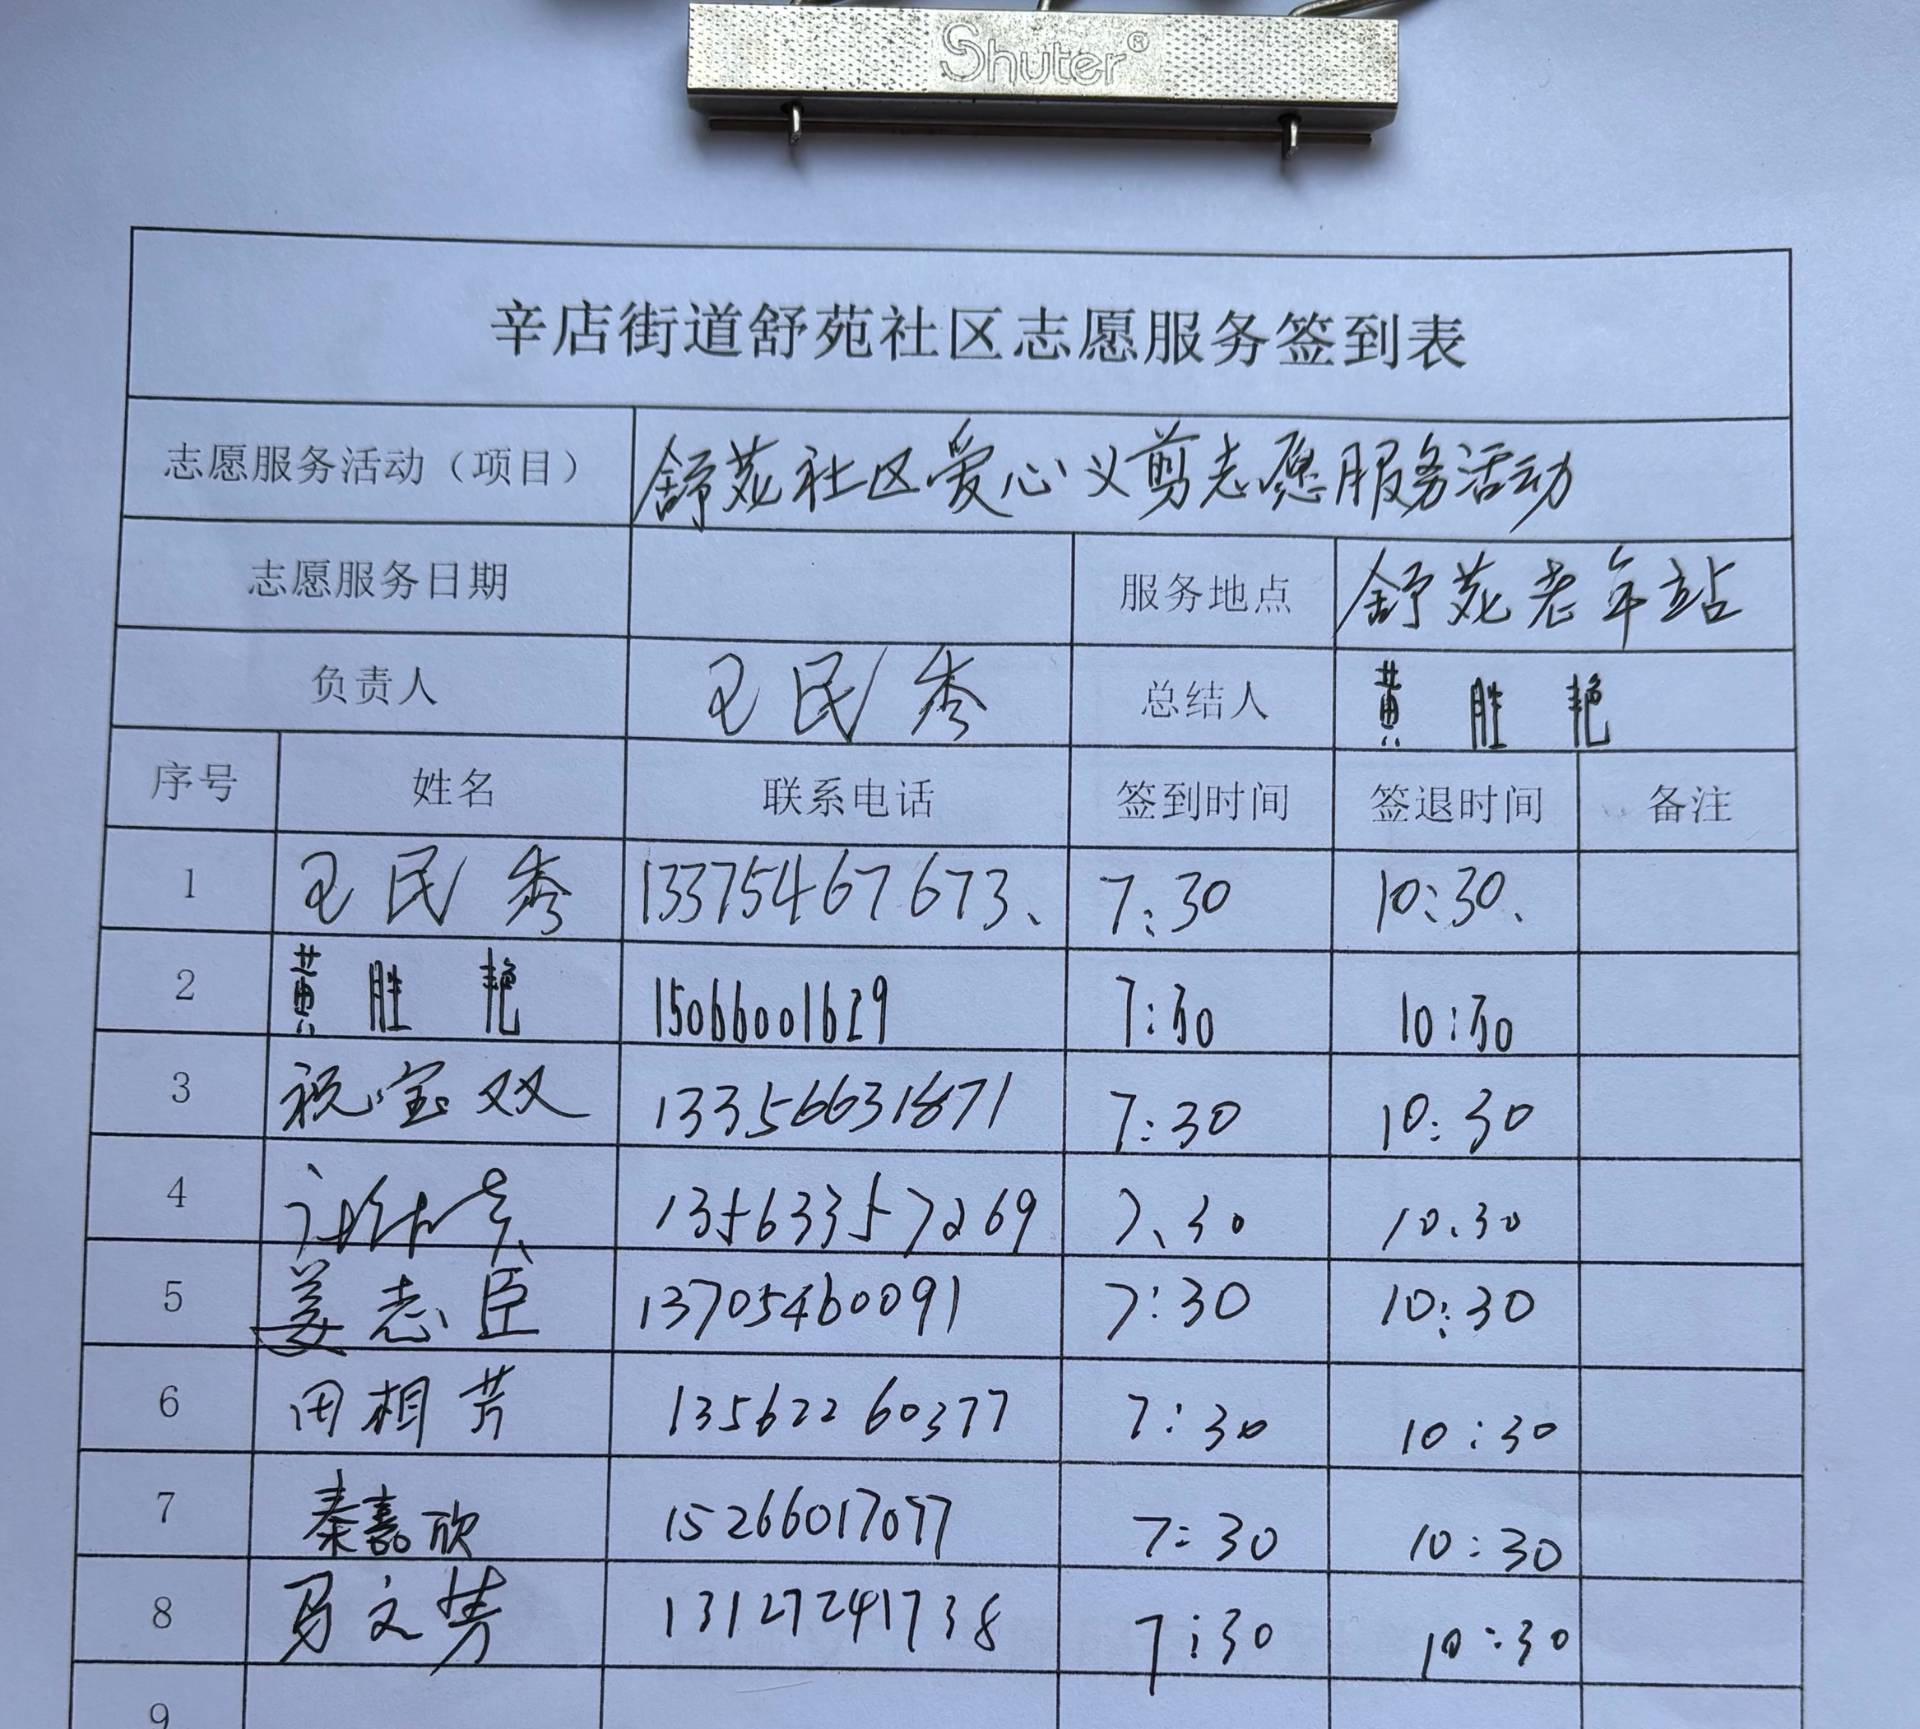 Shuter®
辛店街道舒苑社区志愿服务签到表
志愿服务活动（项目） 舒苑社区爱心义剪志愿服务活动
志愿服务日期 服务地点 舒苑老年站
负责人 王民秀 总结人 黄胜艳
序号 姓名 联系电话 签到时间 签退时间 备注
1 王民秀 13375467673、 7:30 10:30、
2 黄胜艳 15066001629 7:30 10:30
3 祝宝双 13356631871 7:30 10:30
4 13563357269 7、30 10.30
5 姜志臣 13705460091 7:30 10:30
6 田相芳 13562260377 7:30 10:30
7 秦嘉欣 15266017077 7:30 10:30
8 马文 13127241738 7:30 10:30
9